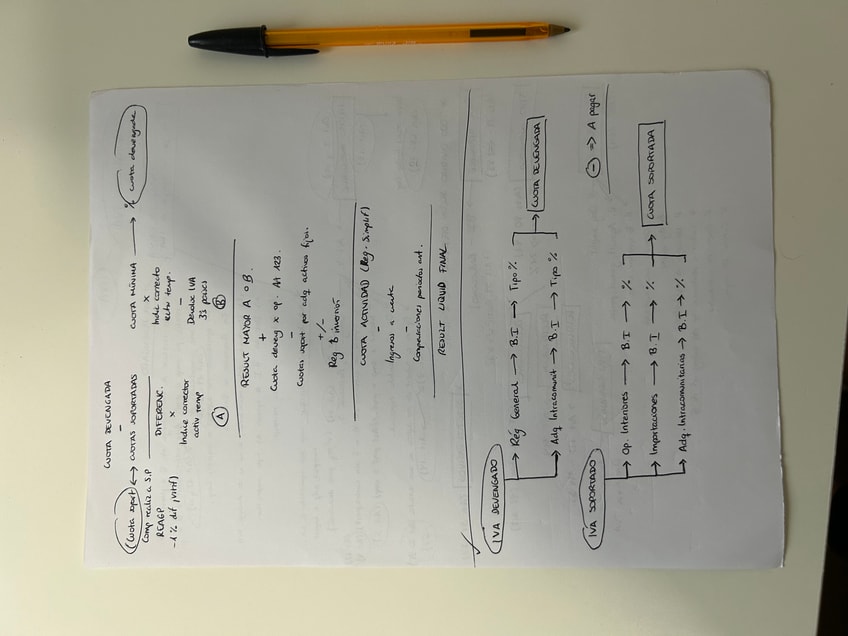 CUOTA DEVENGADA
-
Cuota soport ⟷ CUOTAS SOPORTADAS
Comp realiz a S.P
REAGP
-1% dif justif
DIFERENC.
x
Indice corrector
activ temp
A
CUOTA MÍNIMA → % cuota devengada
x
Indic correcto
activ temp.
-
Devoluc IVA
33 países
B
RESULT MAYOR A o B.
+
Cuota deveng x op. At 123.
-
Cuotas soport por adq activos fijos.
+/-
Reg B inversión
CUOTA ACTIVIDAD (Reg. Simplif)
-
Ingresos a cuenta
-
Compensaciones periodos ant.
RESULT LIQUID FINAL
IVA DEVENGADO
→ Rég General → B.I → Tipo %
→ Adq Intracomunit → B.I → Tipo %
→ CUOTA DEVENGADA
- ⇒ A pagar
IVA SOPORTADO
→ Op. Interiores → B.I → %
→ Importaciones → B.I → %
→ Adq. Intracomunitarias → B.I → %
→ CUOTA SOPORTADA